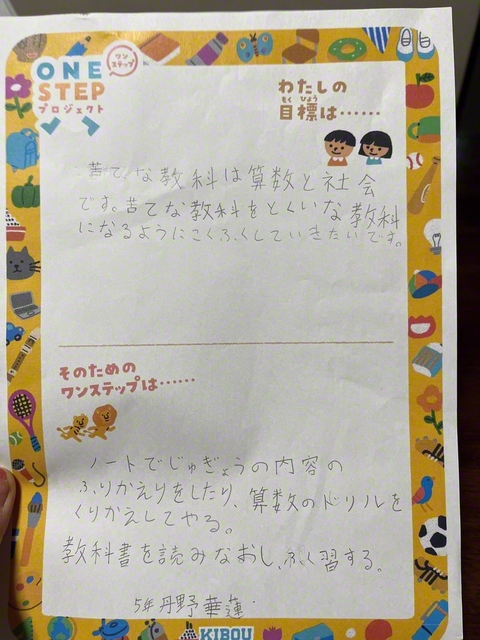 ONE
STEP
プロジェクト
ワン
ステップ
わたしの
もく ひょう
目標は……
苦てな教科は算数と社会
です。苦てな教科をとくいな教科
になるようにこくふくしていきたいです。
そのための
ワンステップは……
ノートでじゅぎょうの内容の
ふりかえりをしたり、算数のドリルを
くりかえしてやる。
教科書を読みなおし、ふく習する。
5年 丹野華蓮
KIBOU